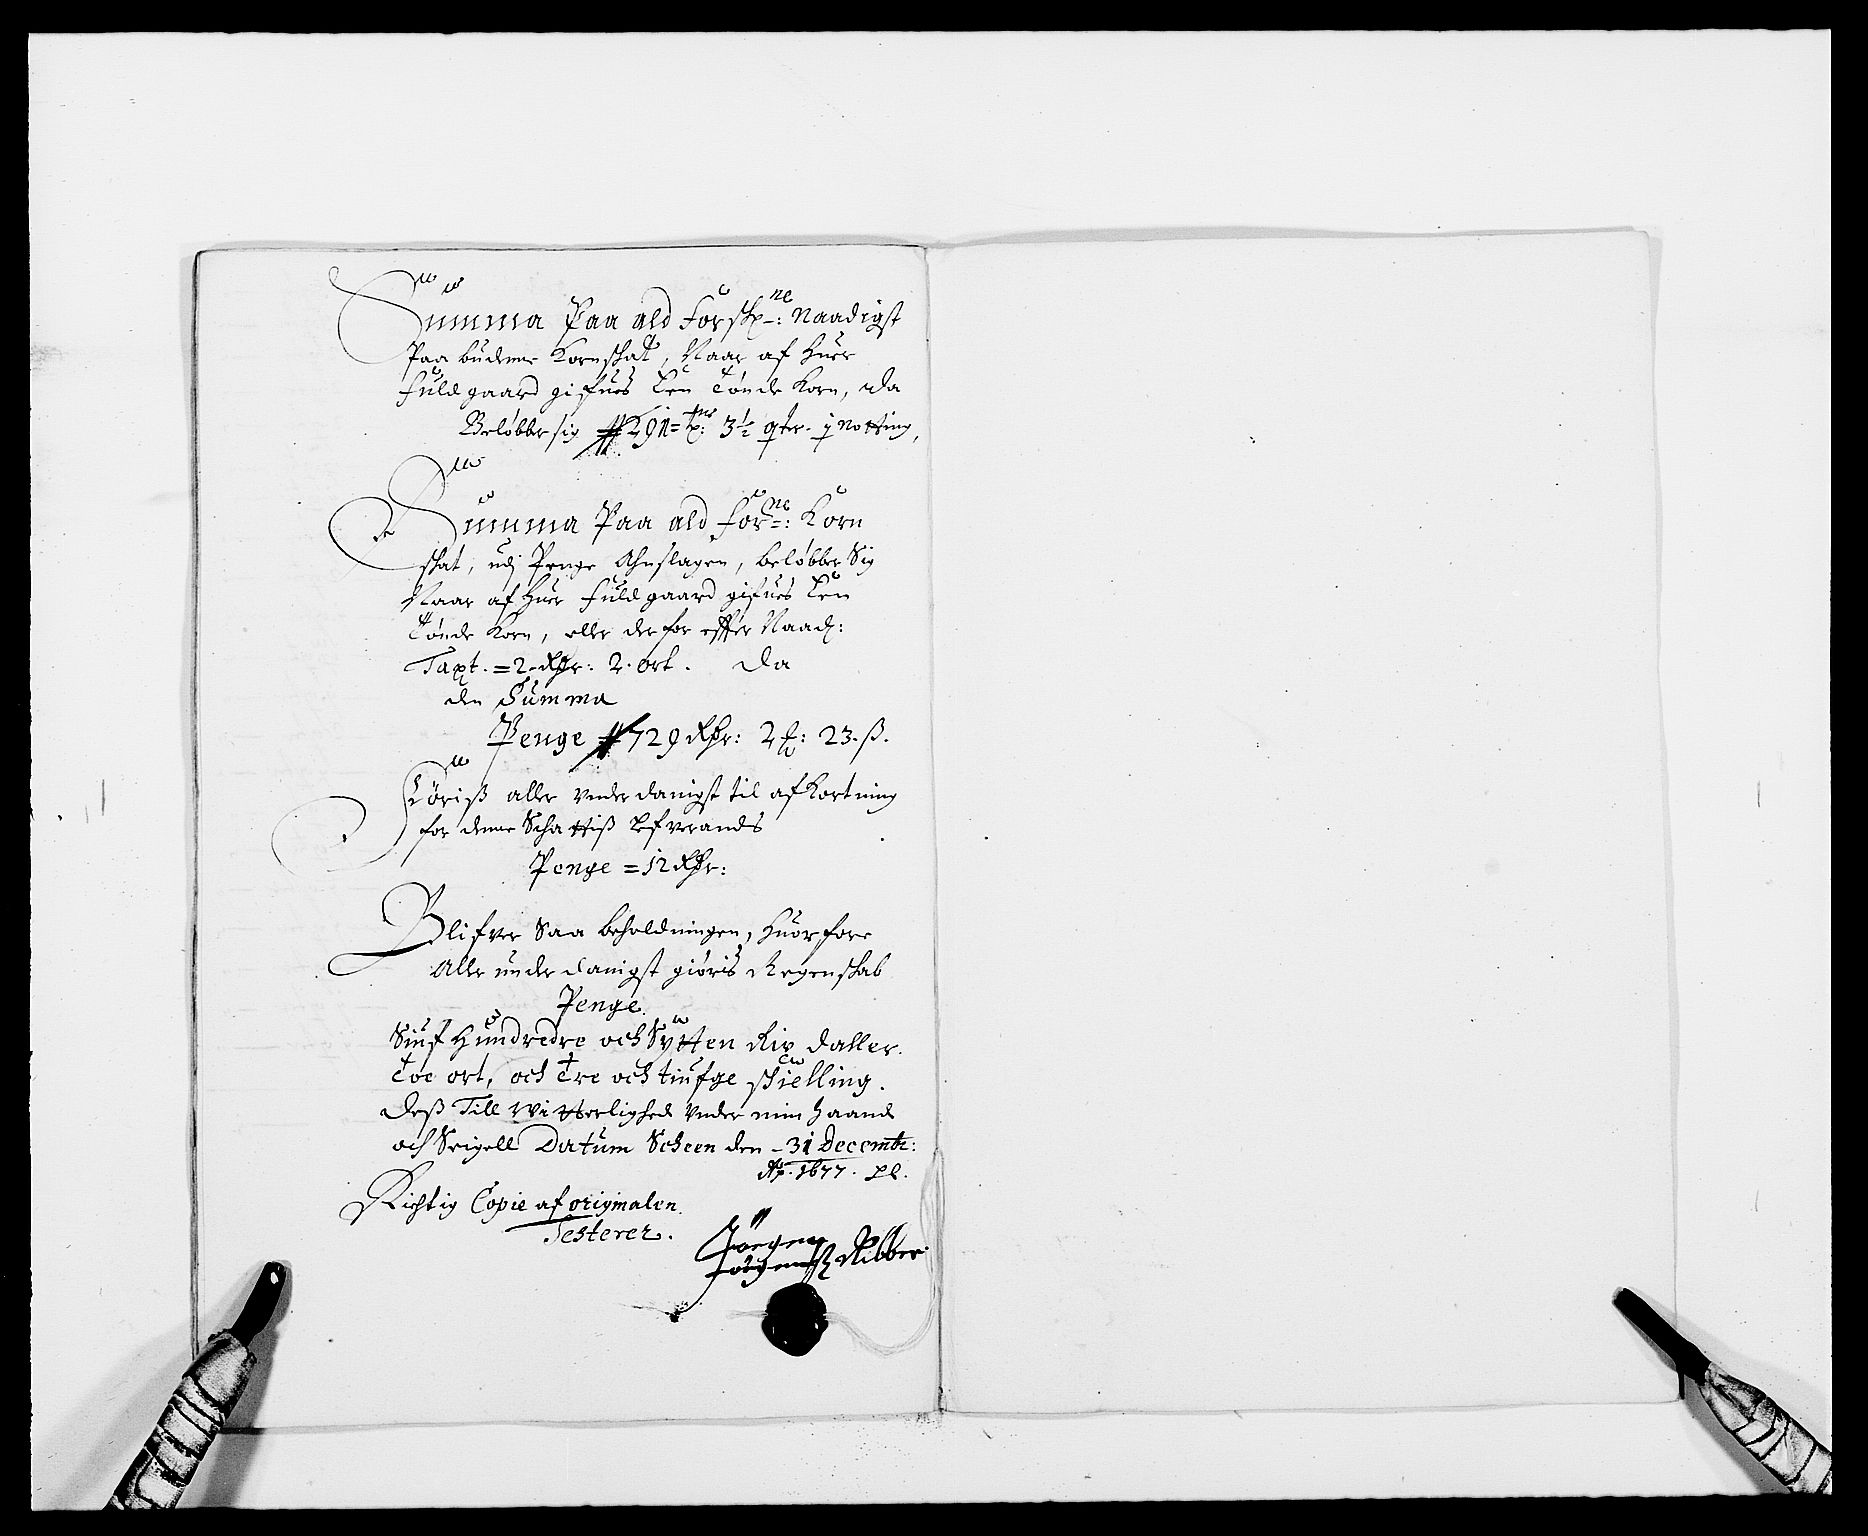 Summa Paa ald forskr:ne Naadigst
Paa budenne Kornskat, Naar af huer
fuldgaard gifues Een tønde Korn, da
Beløbber sig 291 tr: 3½ qter. j notting,
Summa Paa ald for:ne Korn
skat, udj Penge Ahnslagen, beløbber Sig
Naar af huer fuldgaard gifues Een
Tønde Korn, eller derfor effter Naad:
Taxt. = 2 Rdr: 2. ort. da
den Summa
Penge 729 Rdr: 2 : 23. ß.
føriß aller underdanigst til afkortning
for denne Schattiß
Penge = 12 Rdr:
Blifver Saa beholdningen, huorfore
Aller underdanigst giøris Regenskab
Penge.
Siuf Hundredre och Sytten Rix daller.
toe ort, och tre och tiufge schielling.
Deß Till Witterlighed Under min haand
och Seigell Datum Scheen den 31 Decembr:
Ao. 1677.
Richtig Copie af originalen
Testerer.
Jørgen
Jørgens Ribber